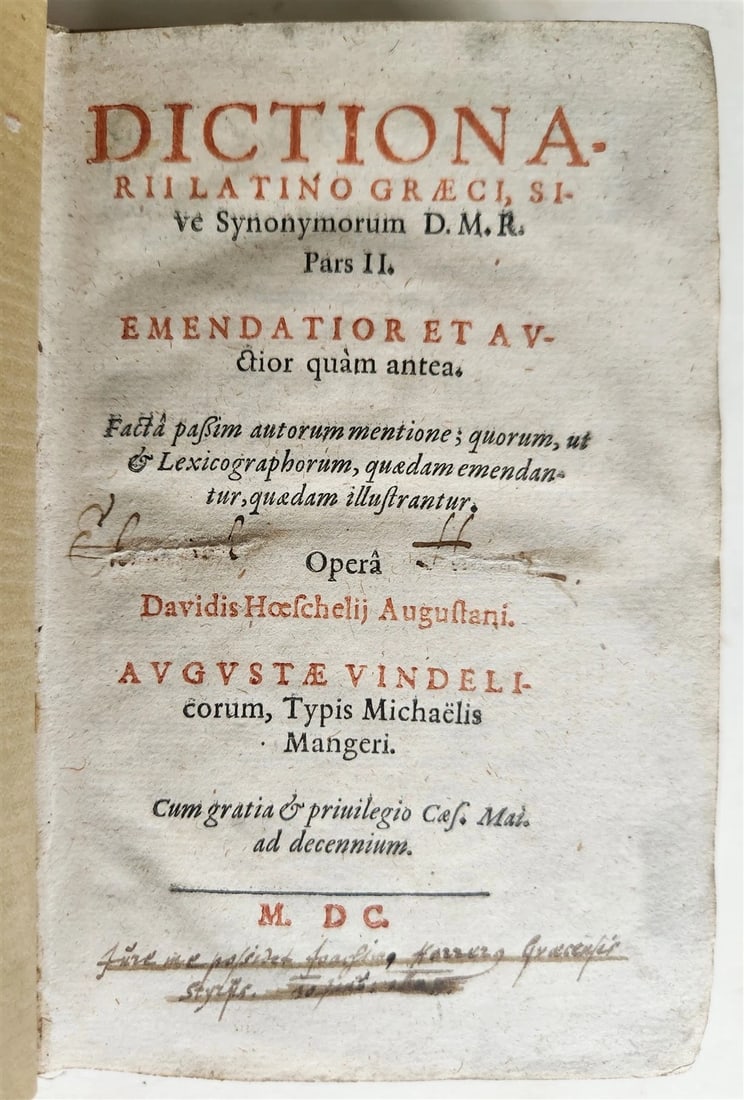 DICTIONA-
RII LATINO GRÆCI, SI-
ve Synonymorum D. M. R.
Pars II.
EMENDATIOR ET AV-
ctior quàm antea.
Factâ paßim autorum mentione; quorum, ut
& Lexicographorum, quædam emendan-
tur, quædam illuſtrantur.
Operâ
Davidis Hœſchelij Auguſtani.
AVGVSTÆ VINDELI-
corum, Typis Michaëlis
Mangeri.
Cum gratia & priuilegio Cæſ. Mai.
ad decennium.
M. D C.
Jure me poſsidet Joachimus